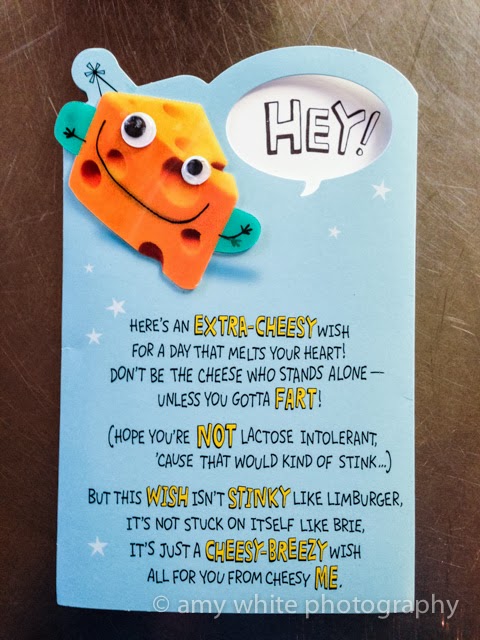 HEY!
HERE'S AN EXTRA-CHEESY WISH
FOR A DAY THAT MELTS YOUR HEART!
DON'T BE THE CHEESE WHO STANDS ALONE—
UNLESS YOU GOTTA FART!
(HOPE YOU'RE NOT LACTOSE INTOLERANT,
'CAUSE THAT WOULD KIND OF STINK...)
BUT THIS WISH ISN'T STINKY LIKE LIMBURGER,
IT'S NOT STUCK ON ITSELF LIKE BRIE,
IT'S JUST A CHEESY-BREEZY WISH
ALL FOR YOU FROM CHEESY ME.
© amy white photography